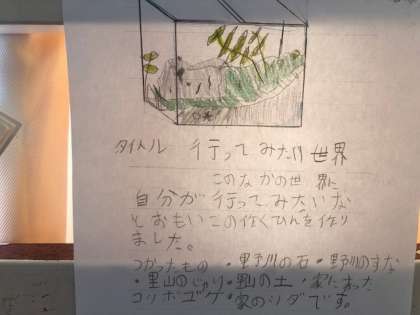 タイトル 行ってみたい世界
このなかの世界に
自分が行ってみたいな
とおもいこの作くひんを作り
ました。
つかったもの ・野川の石・野川のすな
・里山のじゃり・里山の土・家にあった
コツボゴケ・家のシダです。